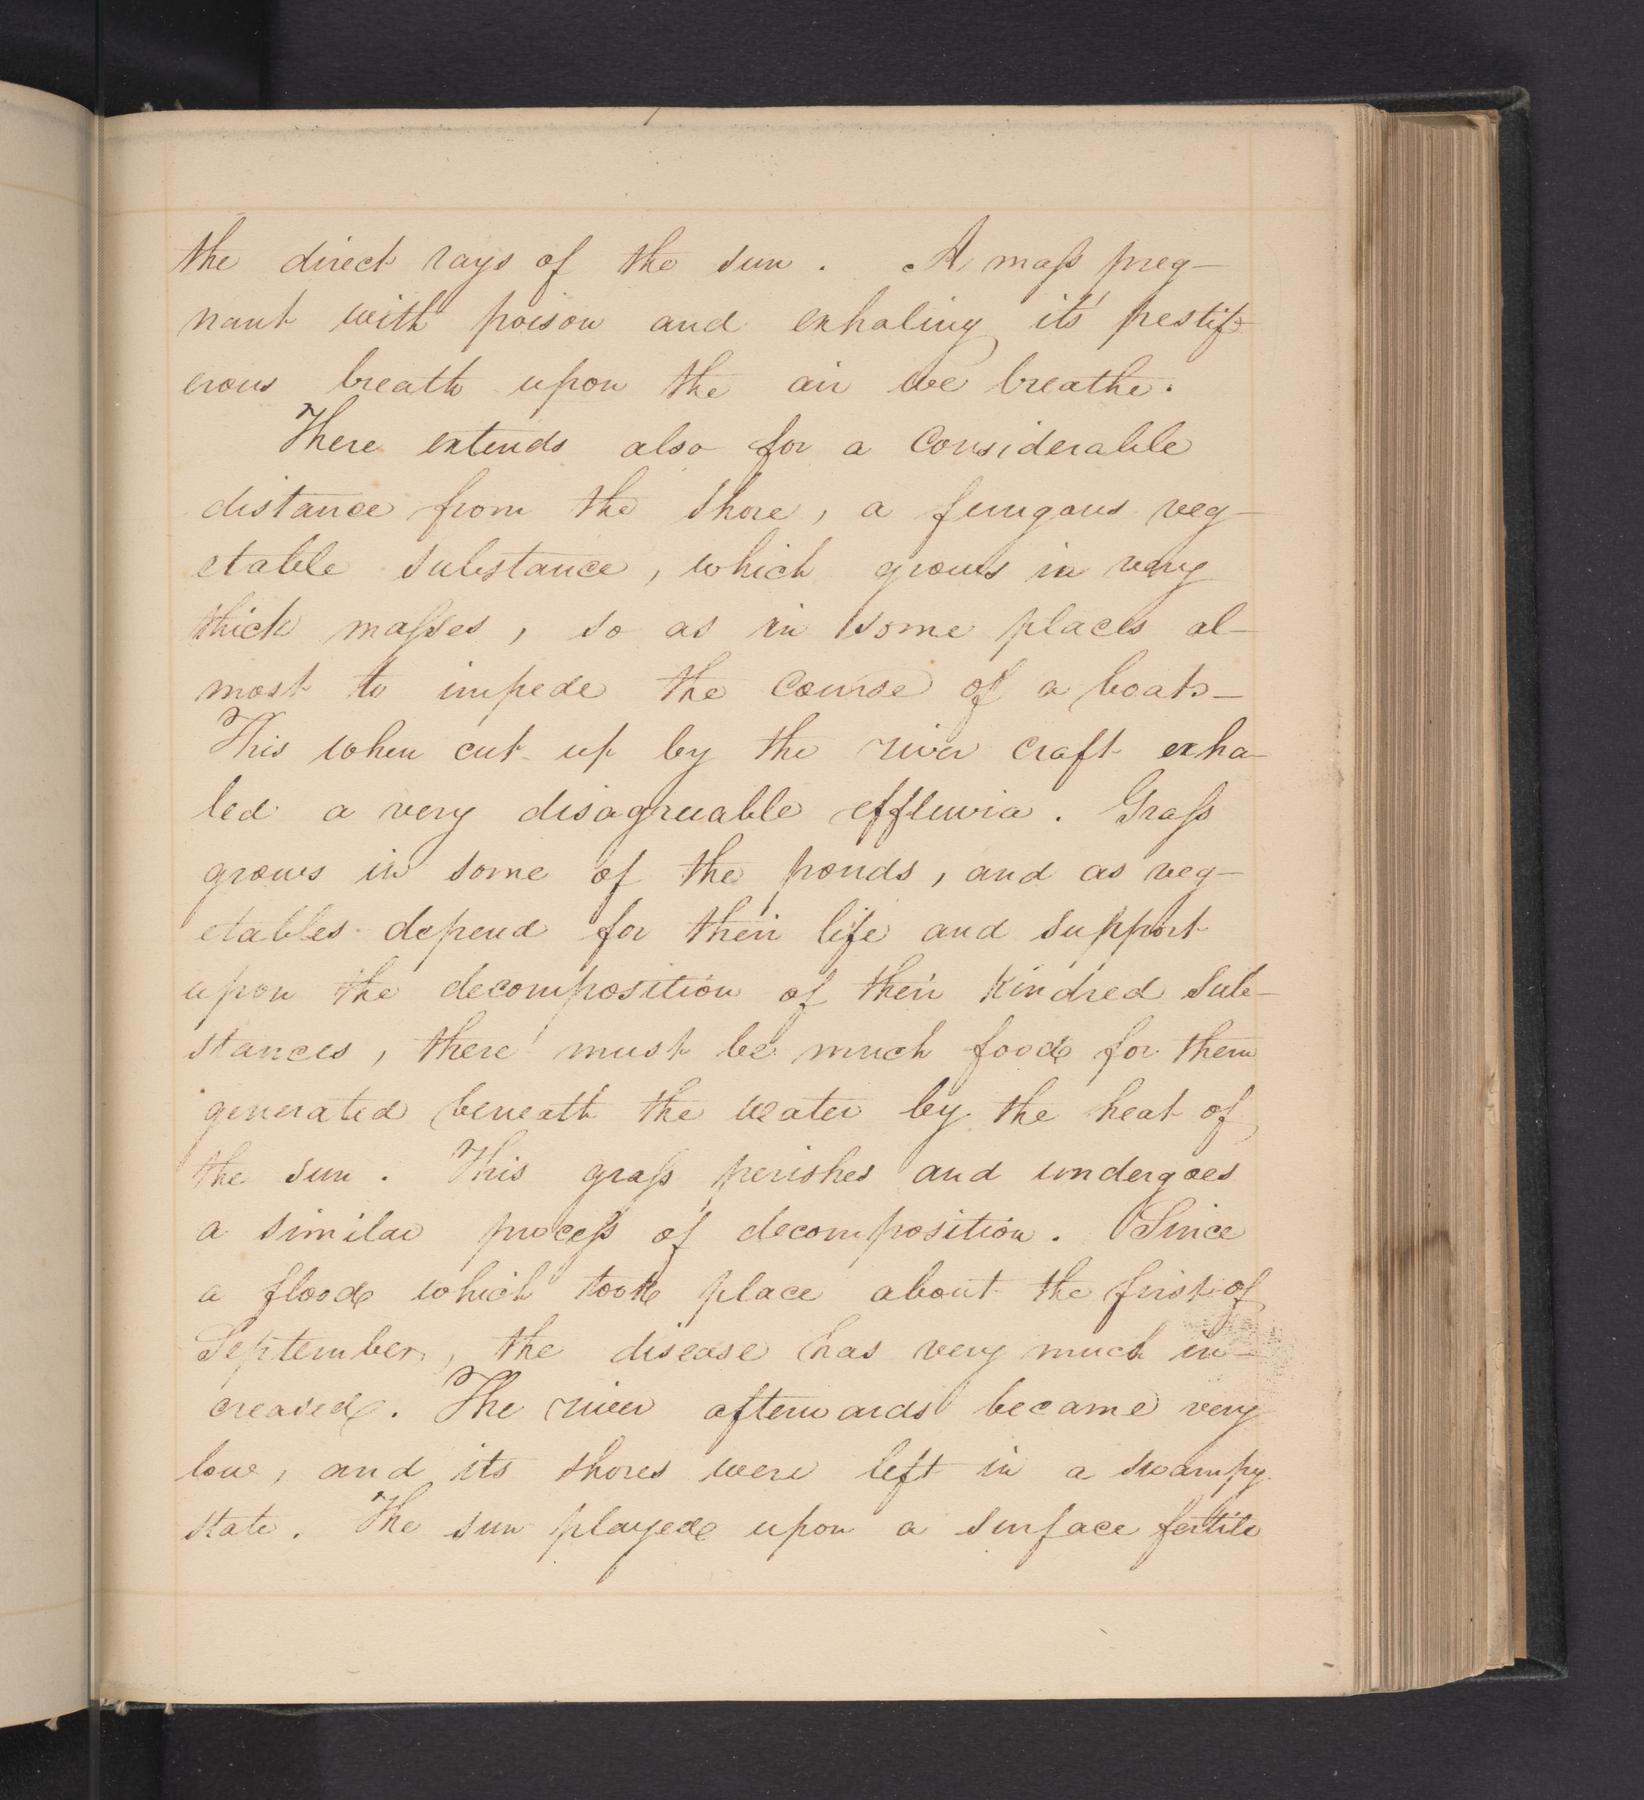 the direct rays of the sun. A mass preg-
nant with poison and exhaling it's pestif-
erous breath upon the air we breathe.
There extends also for a considerable
distance from the shore, a fungous veg-
etable substance, which grows in very
thick masses, so as in some places al-
most to impede the course of a boats-
This when cut up by the river craft exha-
led a very disagreeable effluvia. Grass
grows in some of the ponds, and as veg-
etables depend for their life and support
upon the decomposition of their kindred sub-
stances, there must be much food for them
generated beneath the water by the heat of
the sun. This grass perishes and undergoes
a similar process of decomposition. Since
a flood which took place about the first of
September, the disease has very much in-
creased. The river afterwards became very
low, and its shores were left in a swampy
state. The sun played upon a surface fertile